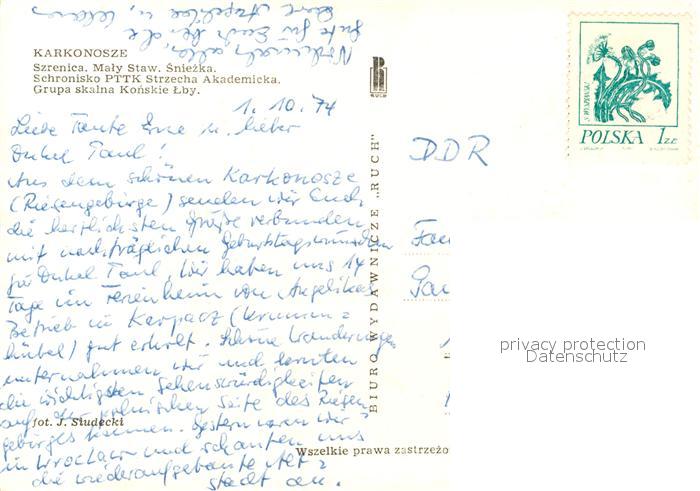 KARKONOSZE
Szrenica, Mały Staw. Śnieżka.
Schronisko PTTK Strzecha Akademicka.
Grupa skalna Końskie Łby.
1. 10. 74
Liebe Tante Erne u. lieber
Onkel Paul!
Aus dem schönen Karkonosze
(Riesengebirge) senden wir Euch
die herzlichsten Grüße verbunden
mit nachträglichen Geburtstagswünschen
für Onkel Paul. Wir haben uns 14
Tage im Ferienheim von Angelikas
Betrieb in Karpacz (Krumm=
hübel) gut erholt. Schöne Wanderungen
unternahmen wir und lernten
die wichtigsten Sehenswürdigkeiten
auf der polnischen Seite des Riesen-
gebirges kennen. Gestern waren wir
in Wrocław und schauten uns
die wiederaufgebaute Alt=
stadt an.
Nochmals alles
Gute für Euch
fot. J. Siudecki
BIURO WYDAWNICZE „RUCH"
RUCH
Wszelkie prawa zastrzeżo
POLSKA 1 ZŁ
DDR
Fam
Pau
privacy protection
Datenschutz